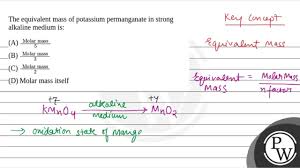 The equivalent mass of potassium permanganate in strong
alkaline medium is:
(A) Molar mass / 5
(B) Molar mass / 3
(C) Molar mass / 2
(D) Molar mass itself
Key Concept
Equivalent Mass
Equivalent Mass = Molar Mass / n factor
+7 +4
KMnO4 alkaline medium → MnO2
→ oxidation state of Mange
PW